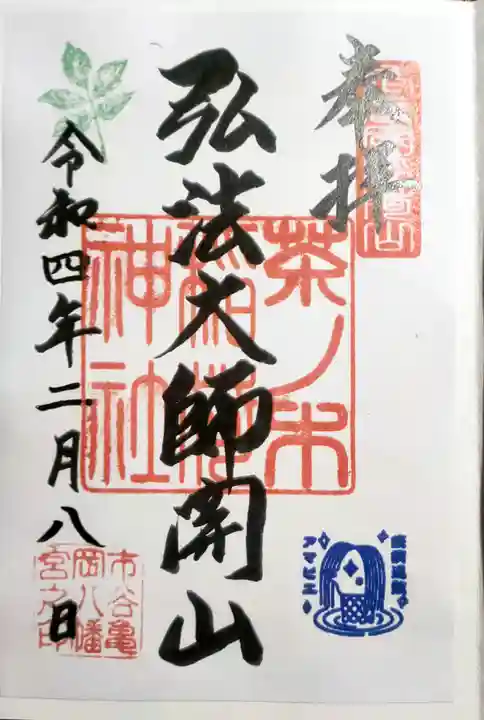 奉拝
弘法大師開山
茶ノ木
稲荷
神社
令和四年二月八日
アマビエ
市谷亀
岡八幡
宮之印